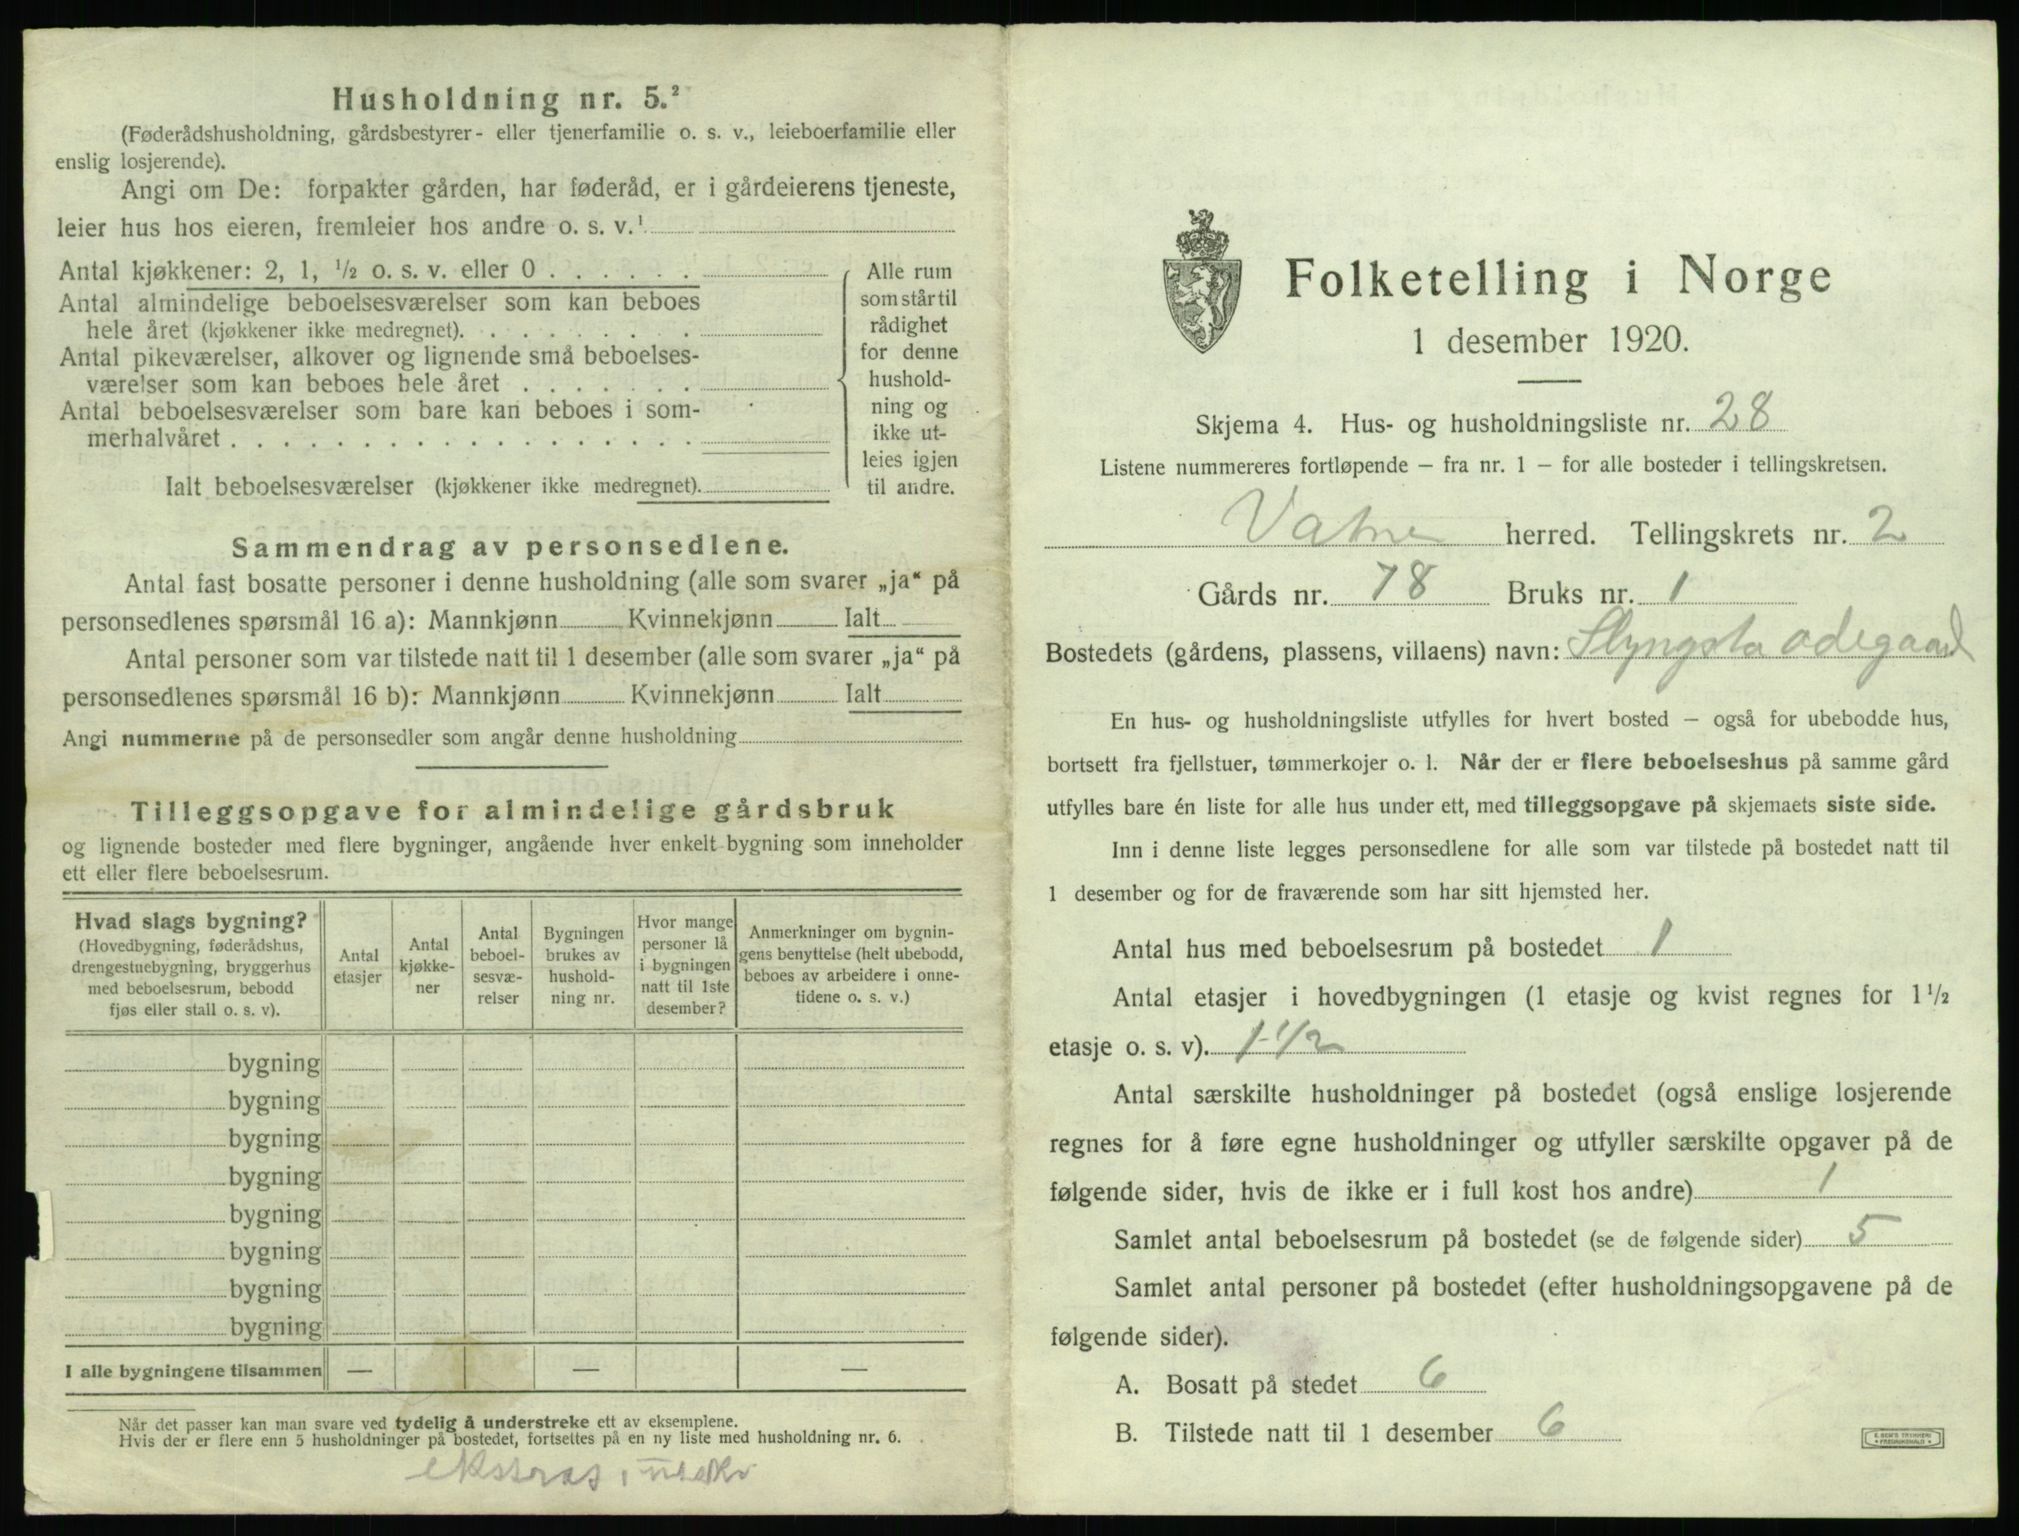 Husholdning nr. 5.²
(Føderådshusholdning, gårdsbestyrer- eller tjenerfamilie o. s. v., leieboerfamilie eller
enslig losjerende).
Angi om De: forpakter gården, har føderåd, er i gårdeierens tjeneste,
leier hus hos eieren, fremleier hos andre o. s. v.¹
Antal kjøkkener: 2, 1, ½ o. s. v. eller 0 . . . . . .
Antal almindelige beboelsesværelser som kan beboes
hele året (kjøkkener ikke medregnet). . . . . . . .
Antal pikeværelser, alkover og lignende små beboelses-
værelser som kan beboes hele året . . . . . . .
Antal beboelsesværelser som bare kan beboes i som-
merhalvåret . . . . . . . . . . . . . . . . . .
Ialt beboelsesværelser (kjøkkener ikke medregnet).
Alle rum
som står til
rådighet
for denne
hushold-
ning og
ikke ut-
leies igjen
til andre.
Sammendrag av personsedlene.
Antal fast bosatte personer i denne husholdning (alle som svarer „ja“ på
personsedlenes spørsmål 16 a): Mannkjønn Kvinnekjønn Ialt
Antal personer som var tilstede natt til 1 desember (alle som svarer „ja“ på
personsedlenes spørsmål 16 b): Mannkjønn Kvinnekjønn Ialt
Angi nummerne på de personsedler som angår denne husholdning
Tilleggsopgave for almindelige gårdsbruk
og lignende bosteder med flere bygninger, angående hver enkelt bygning som inneholder
ett eller flere beboelsesrum.
Hvad slags bygning?
(Hovedbygning, føderådshus,
drengestuebygning, bryggerhus
med beboelsesrum, bebodd
fjøs eller stall o. s. v).
Antal
etasjer
Antal
kjøkke-
ner
Antal
beboel-
sesvæ-
relser
Bygningen
brukes av
hushold-
ning nr.
Hvor mange
personer lå
i bygningen
natt til 1ste
desember?
Anmerkninger om bygnin-
gens benyttelse (helt ubebodd,
beboes av arbeidere i onne-
tidene o. s. v.)
bygning
bygning
bygning
bygning
bygning
bygning
bygning
bygning
I alle bygningene tilsammen — — —
Når det passer kan man svare ved tydelig å understreke ett av eksemplene.
Hvis der er flere enn 5 husholdninger på bostedet, fortsettes på en ny liste med husholdning nr. 6.
Folketelling i Norge
1 desember 1920.
Skjema 4. Hus- og husholdningsliste nr. 28
Listene nummereres fortløpende – fra nr. 1 – for alle bosteder i tellingskretsen.
Vatne herred. Tellingskrets nr. 2
Gårds nr. 78 Bruks nr. 1
Bostedets (gårdens, plassens, villaens) navn: Slyngsta ødegaard
En hus- og husholdningsliste utfylles for hvert bosted – også for ubebodde hus,
bortsett fra fjellstuer, tømmerkojer o. l. Når der er flere beboelseshus på samme gård
utfylles bare én liste for alle hus under ett, med tilleggsopgave på skjemaets siste side.
Inn i denne liste legges personsedlene for alle som var tilstede på bostedet natt til
1 desember og for de fraværende som har sitt hjemsted her.
Antal hus med beboelsesrum på bostedet 1
Antal etasjer i hovedbygningen (1 etasje og kvist regnes for 1½
etasje o. s. v). 1-1/2
Antal særskilte husholdninger på bostedet (også enslige losjerende
regnes for å føre egne husholdninger og utfyller særskilte opgaver på de
følgende sider, hvis de ikke er i full kost hos andre) 1
Samlet antal beboelsesrum på bostedet (se de følgende sider) 5
Samlet antal personer på bostedet (efter husholdningsopgavene på de
følgende sider).
A. Bosatt på stedet 6
B. Tilstede natt til 1 desember 6